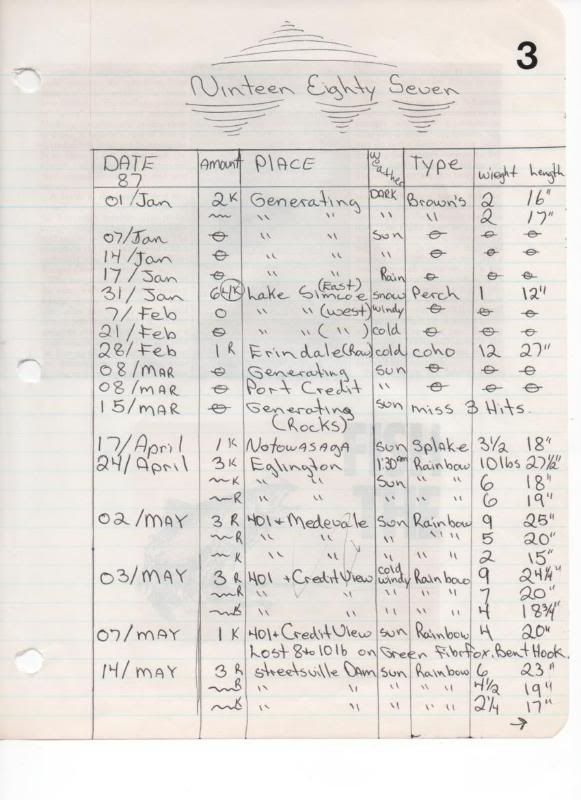 3
Ninteen Eighty Seven
DATE 87 Amount PLACE Weather Type Wieght Length
01/Jan 2K Generating DARK Brown's 2 16"
~ " " " " 2 17"
07/Jan ⊖ " " Sun ⊖ ⊖ ⊖
14/Jan ⊖ " " " ⊖ ⊖ ⊖
17/Jan ⊖ " " Rain ⊖ ⊖ ⊖
31/Jan 6 4K Lake Simcoe (East) snow Perch 1 12"
7/Feb 0 " " (west) windy ⊖ ⊖ ⊖
21/Feb ⊖ " " ( " ) cold ⊖ ⊖ ⊖
28/Feb 1R Erindale (Row) cold coho 12 27"
08/MAR ⊖ Generating sun ⊖ ⊖ ⊖
08/MAR ⊖ Port Credit " ⊖ ⊖ ⊖
15/MAR ⊖ Generating sun miss 3 Hits.
(Rocks)
17/April 1K Notowasaga sun Splake 3 1/2 18"
24/April 3K Eglington 1:30am Rainbow 10lbs 27 1/2"
~K " " Sun " " 6 18"
~R " " " " " 6 19"
02/MAY 3R 401 + Medevale Sun Rainbow 9 25"
~R " " " " " 5 20"
~K " " " " " 2 15"
03/MAY 3R 401 + CreditView cold windy Rainbow 9 24 1/4"
~R " " " " " 7 20"
~K " " " " " 4 18 3/4"
07/MAY 1K 401 + CreditView sun Rainbow 4 20"
Lost 8 to 10lb on Green Fibrfox. Bent Hook.
14/MAY 3R Streetsville Dam sun Rainbow 6 23"
~R " " " " " 4 1/2 19"
~K " " " " " 2 1/4 17"
→